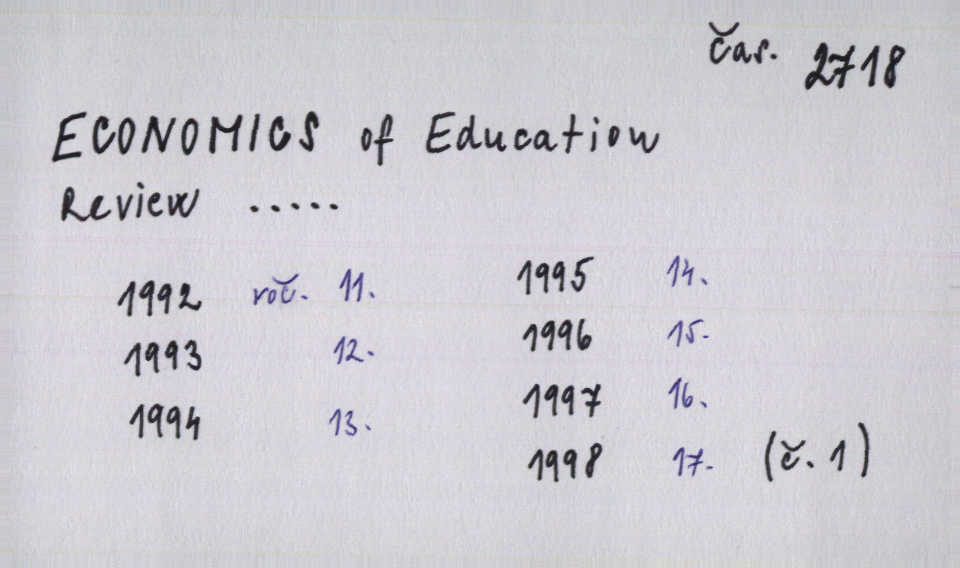 čas. 2718
ECONOMICS of Education
Review .....
1992 roč. 11.
1993 12.
1994 13.
1995 14.
1996 15.
1997 16.
1998 17. (č. 1)